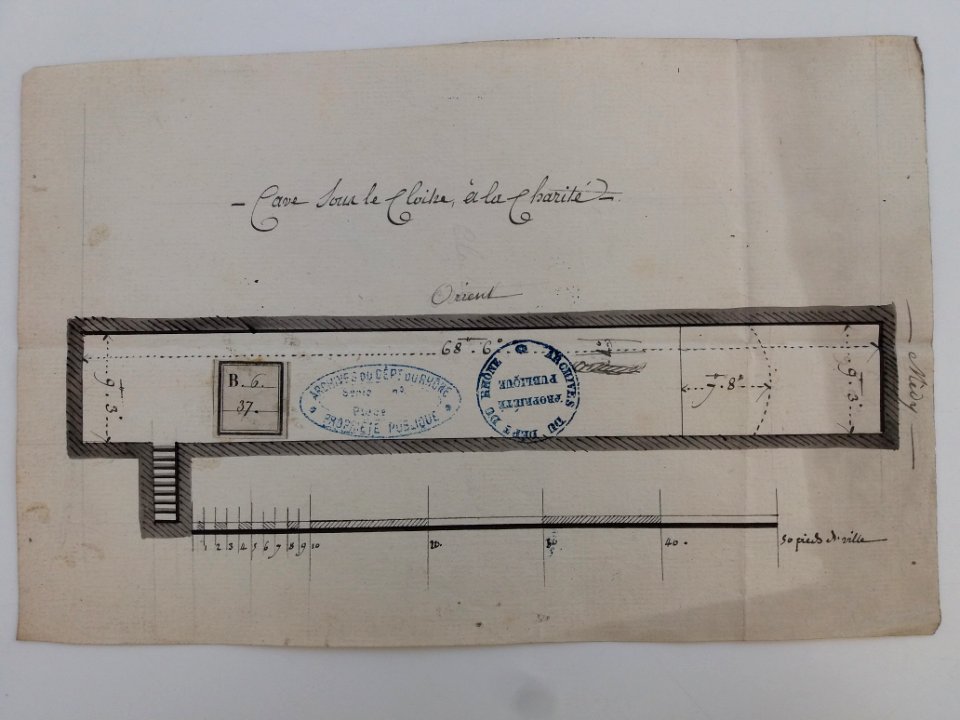 Cave Sous le Cloitre, à la Charité
Orient
68. 6°
9. 3°
B. 6.
37.
ARCHIVES DU DÉPT DU RHÔNE
Série n°
Pièce
PROPRIÉTÉ PUBLIQUE
ARCHIVES DU DEPT DU RHÔNE
PROPRIÉTÉ
PUBLIQUE
7. 8°
9. 3°
Midy
1 2 3 4 5 6 7 8 9 10 20. 30 40. 50 pieds de ville